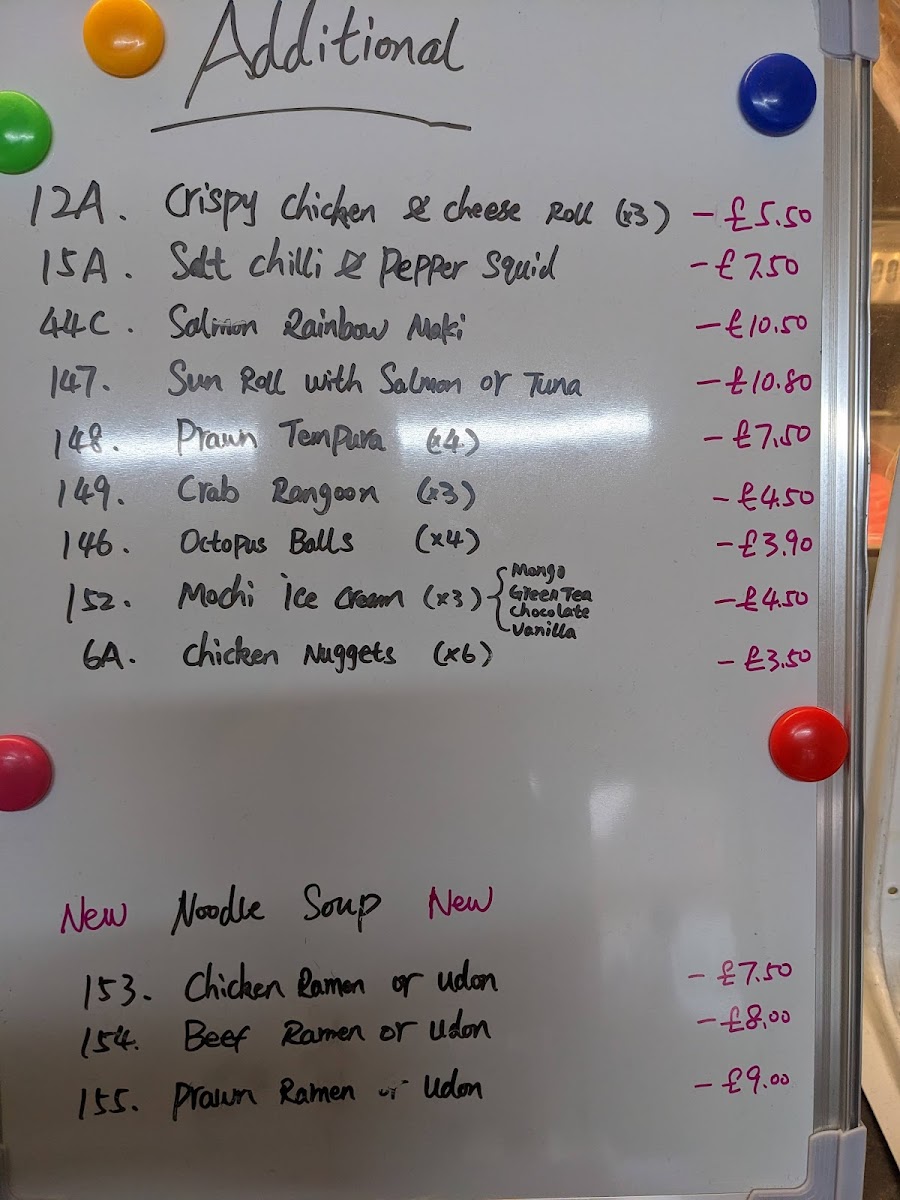 Additional
12A. Crispy Chicken & cheese Roll (x3) - £5.50
15A. Salt chilli & Pepper Squid - £7.50
44C. Salmon Rainbow Maki - £10.50
147. Sun Roll with Salmon or Tuna - £10.80
148. Prawn Tempura (x4) - £7.50
149. Crab Rangoon (x3) - £4.50
146. Octopus Balls (x4) - £3.90
152. Mochi Ice Cream (x3) - £4.50
Mango
Green Tea
Chocolate
Vanilla
6A. Chicken Nuggets (x6) - £3.50
New Noodle Soup New
153. Chicken Ramen or Udon - £7.50
154. Beef Ramen or Udon - £8.00
155. Prawn Ramen or Udon - £9.00